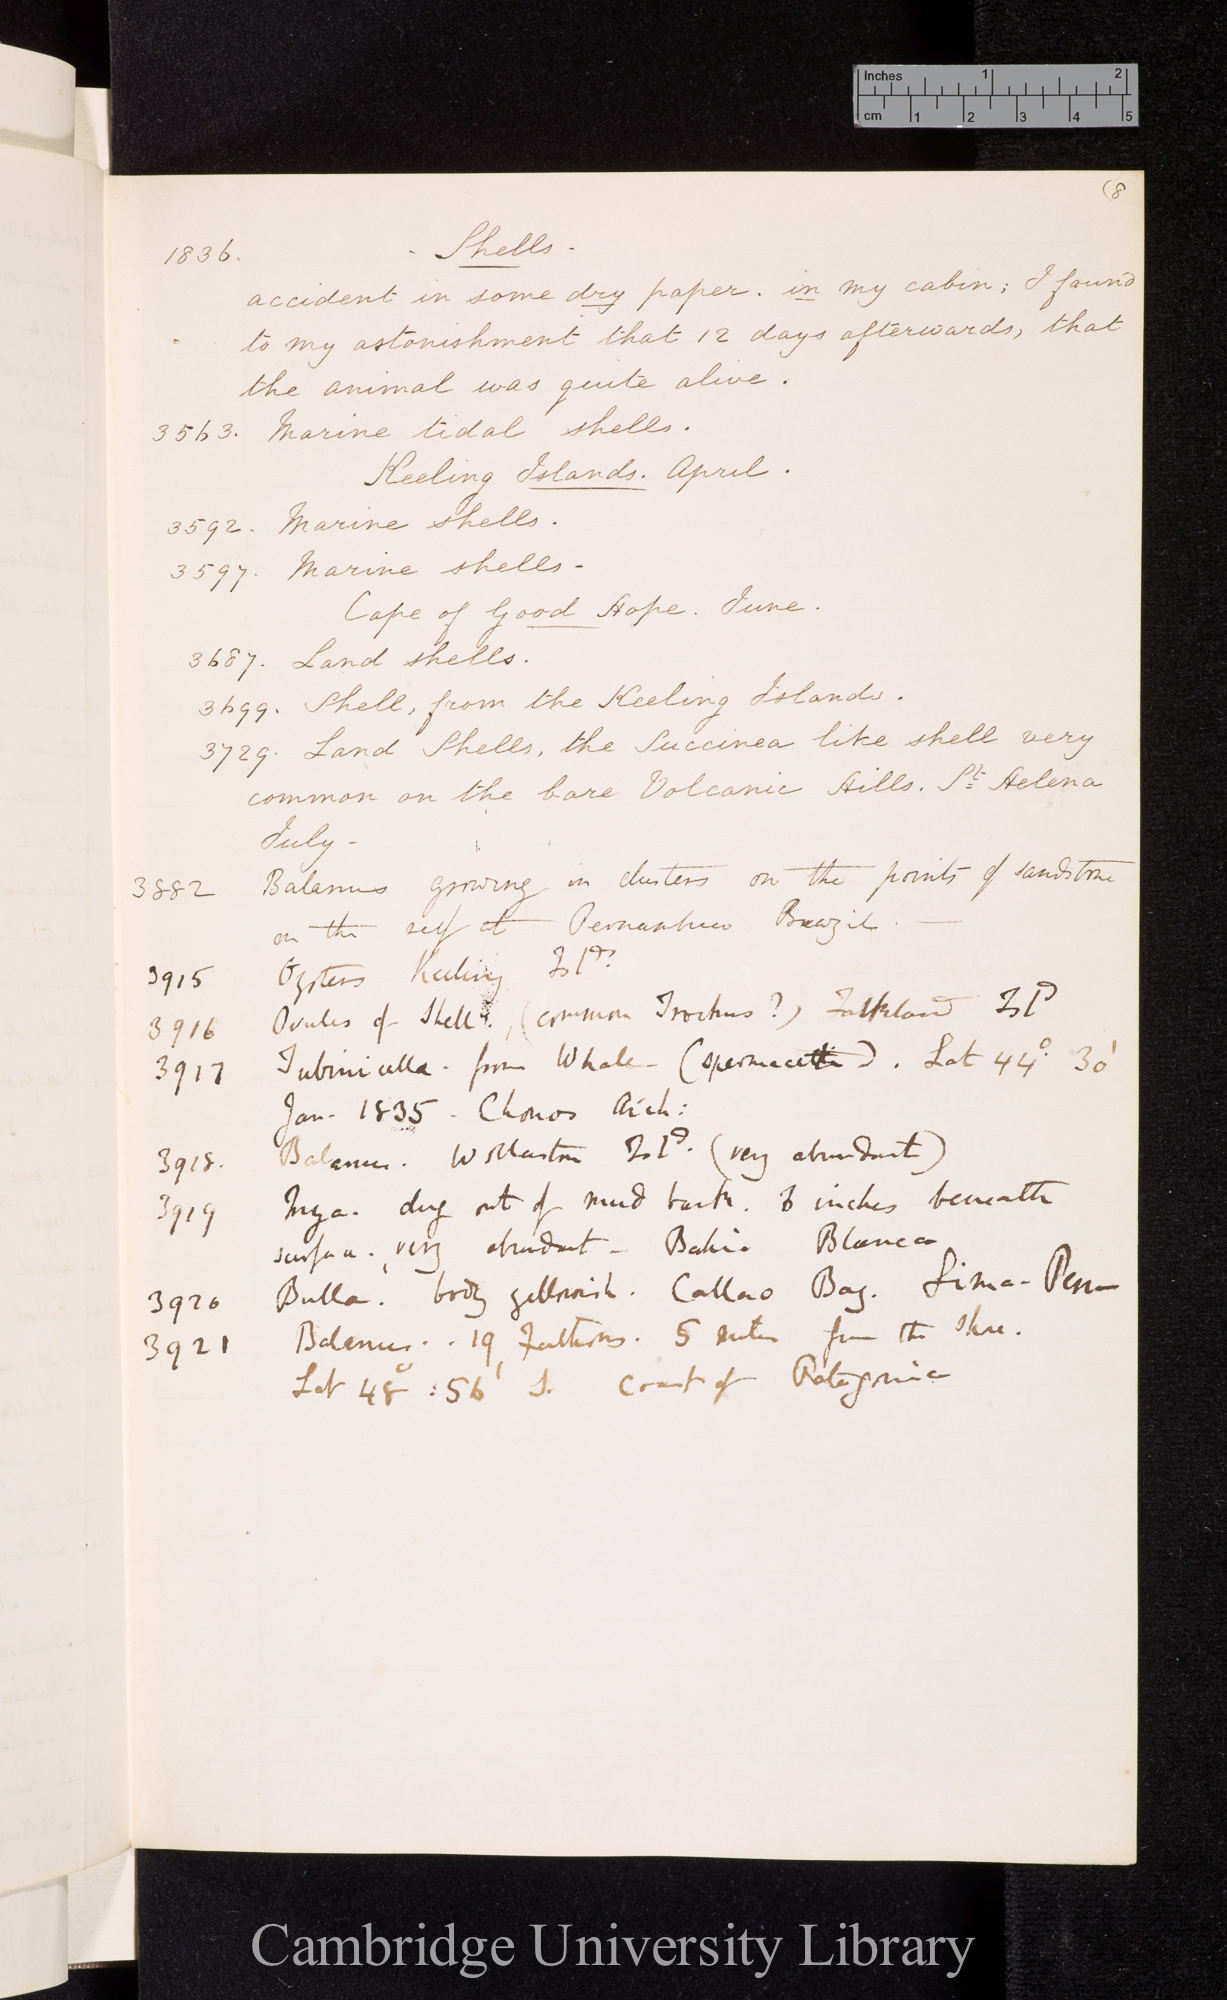 Inches 1 2
cm 1 2 3 4 5
(8
1836. - Shells -
accident in some dry paper. in my cabin; I found
to my astonishment that 12 days afterwards, that
the animal was quite alive.
3563. Marine tidal shells.
Keeling Islands. April.
3592. Marine shells.
3597. Marine shells -
Cape of Good Hope. June.
3687. Land shells.
3699. Shell, from the Keeling Islands.
3729. Land Shells, the Succinea like shell very
common on the bare Volcanic Hills. St Helena
July -
3882 Balanus growing in clusters on the points of sandstone
on the reef at Pernambuco Brazil. —
3915 Oysters Keeling Islds
3916 Ovules of Shell. (common Trochus?) Falkland Isld
3917 Tubinicella - from Whale - (spermacetti). Lat 44° 30'
Jan - 1835 - Chonos Arch:
3918. Balanus. Wollaston Isld. (very abundant)
3919 Mya. dug out of mud bank. 6 inches beneath
surface. very abundant - Bahia Blanca
3920 Bulla. body yellowish. Callao Bay. Lima - Peru
3921 Balanus. . 19 Fathoms. 5 miles from the shore.
Lat 48° : 56' S. Coast of Patagonia
Cambridge University Library